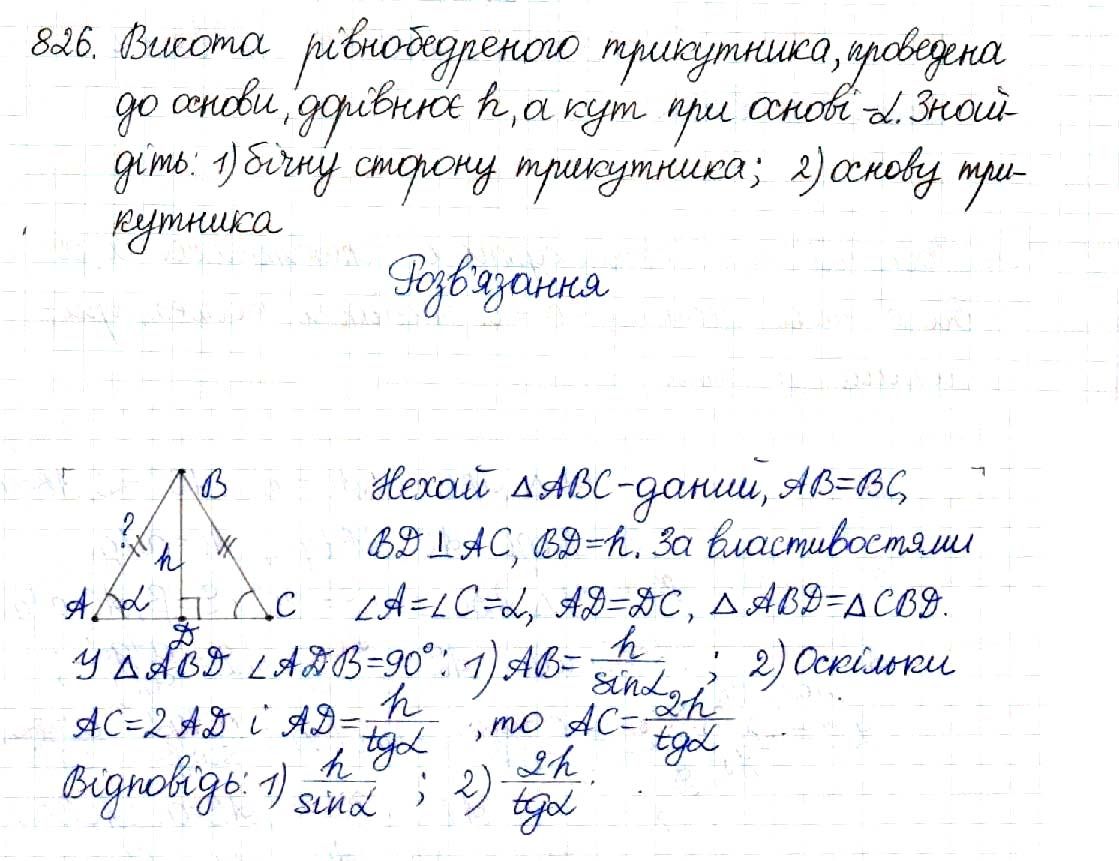 826. Висота рівнобедреного трикутника, проведена
до основи, дорівнює h, а кут при основі -α. Знай-
діть: 1) бічну сторону трикутника; 2) основу три-
кутника
Розв'язання
B
?
h
A α C
D
Нехай △ABC-даний, AB=BC,
BD⊥AC, BD=h. За властивостями
∠A=∠C=α, AD=DC, △ABD=△CBD.
У △ABD ∠ADB=90°: 1) AB=h/sinα; 2) Оскільки
AC=2AD і AD=h/tgα, то AC=2h/tgα
Відповідь: 1) h/sinα; 2) 2h/tgα.